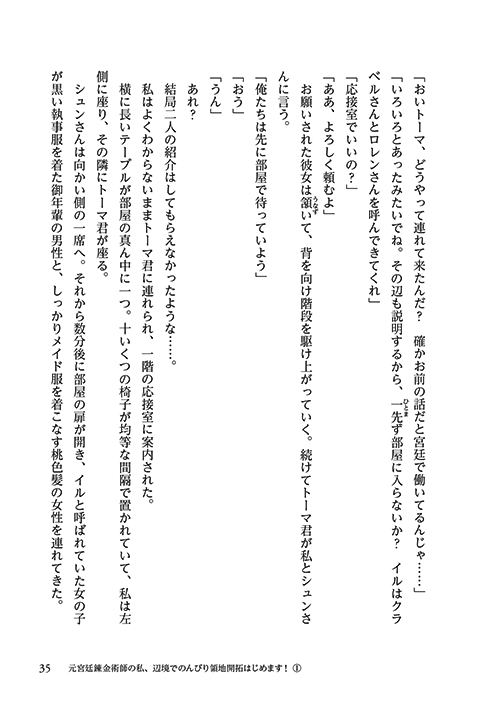 「おいトーマ、どうやって連れて来たんだ？　確かお前の話だと宮廷で働いてるんじゃ……」
「いろいろとあったみたいでね。その辺も説明するから、一先ず部屋に入らないか？　イルはクラ
ベルさんとロレンさんを呼んできてくれ」
「応接室でいいの？」
「ああ、よろしく頼むよ」
　お願いされた彼女は頷いて、背を向け階段を駆け上がっていく。続けてトーマ君が私とシュンさ
んに言う。
「俺たちは先に部屋で待っていよう」
「おう」
「うん」
　あれ？
　結局二人の紹介はしてもらえなかったような……。
　私はよくわからないままトーマ君に連れられ、一階の応接室に案内された。
　横に長いテーブルが部屋の真ん中に一つ。十いくつの椅子が均等な間隔で置かれていて、私は左
側に座り、その隣にトーマ君が座る。
　シュンさんは向かい側の一席へ。それから数分後に部屋の扉が開き、イルと呼ばれていた女の子
が黒い執事服を着た御年輩の男性と、しっかりメイド服を着こなす桃色髪の女性を連れてきた。
35　元宮廷錬金術師の私、辺境でのんびり領地開拓はじめます！①